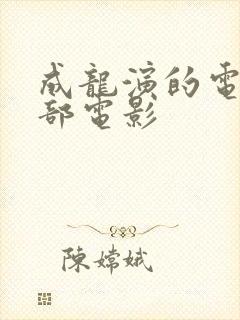 成龍演的電
部電影
陳嫦娥